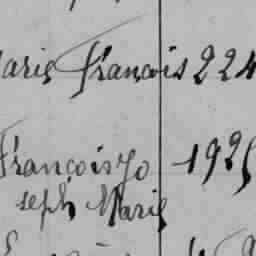 Marie François 224
François Jo 1925
seph Marie